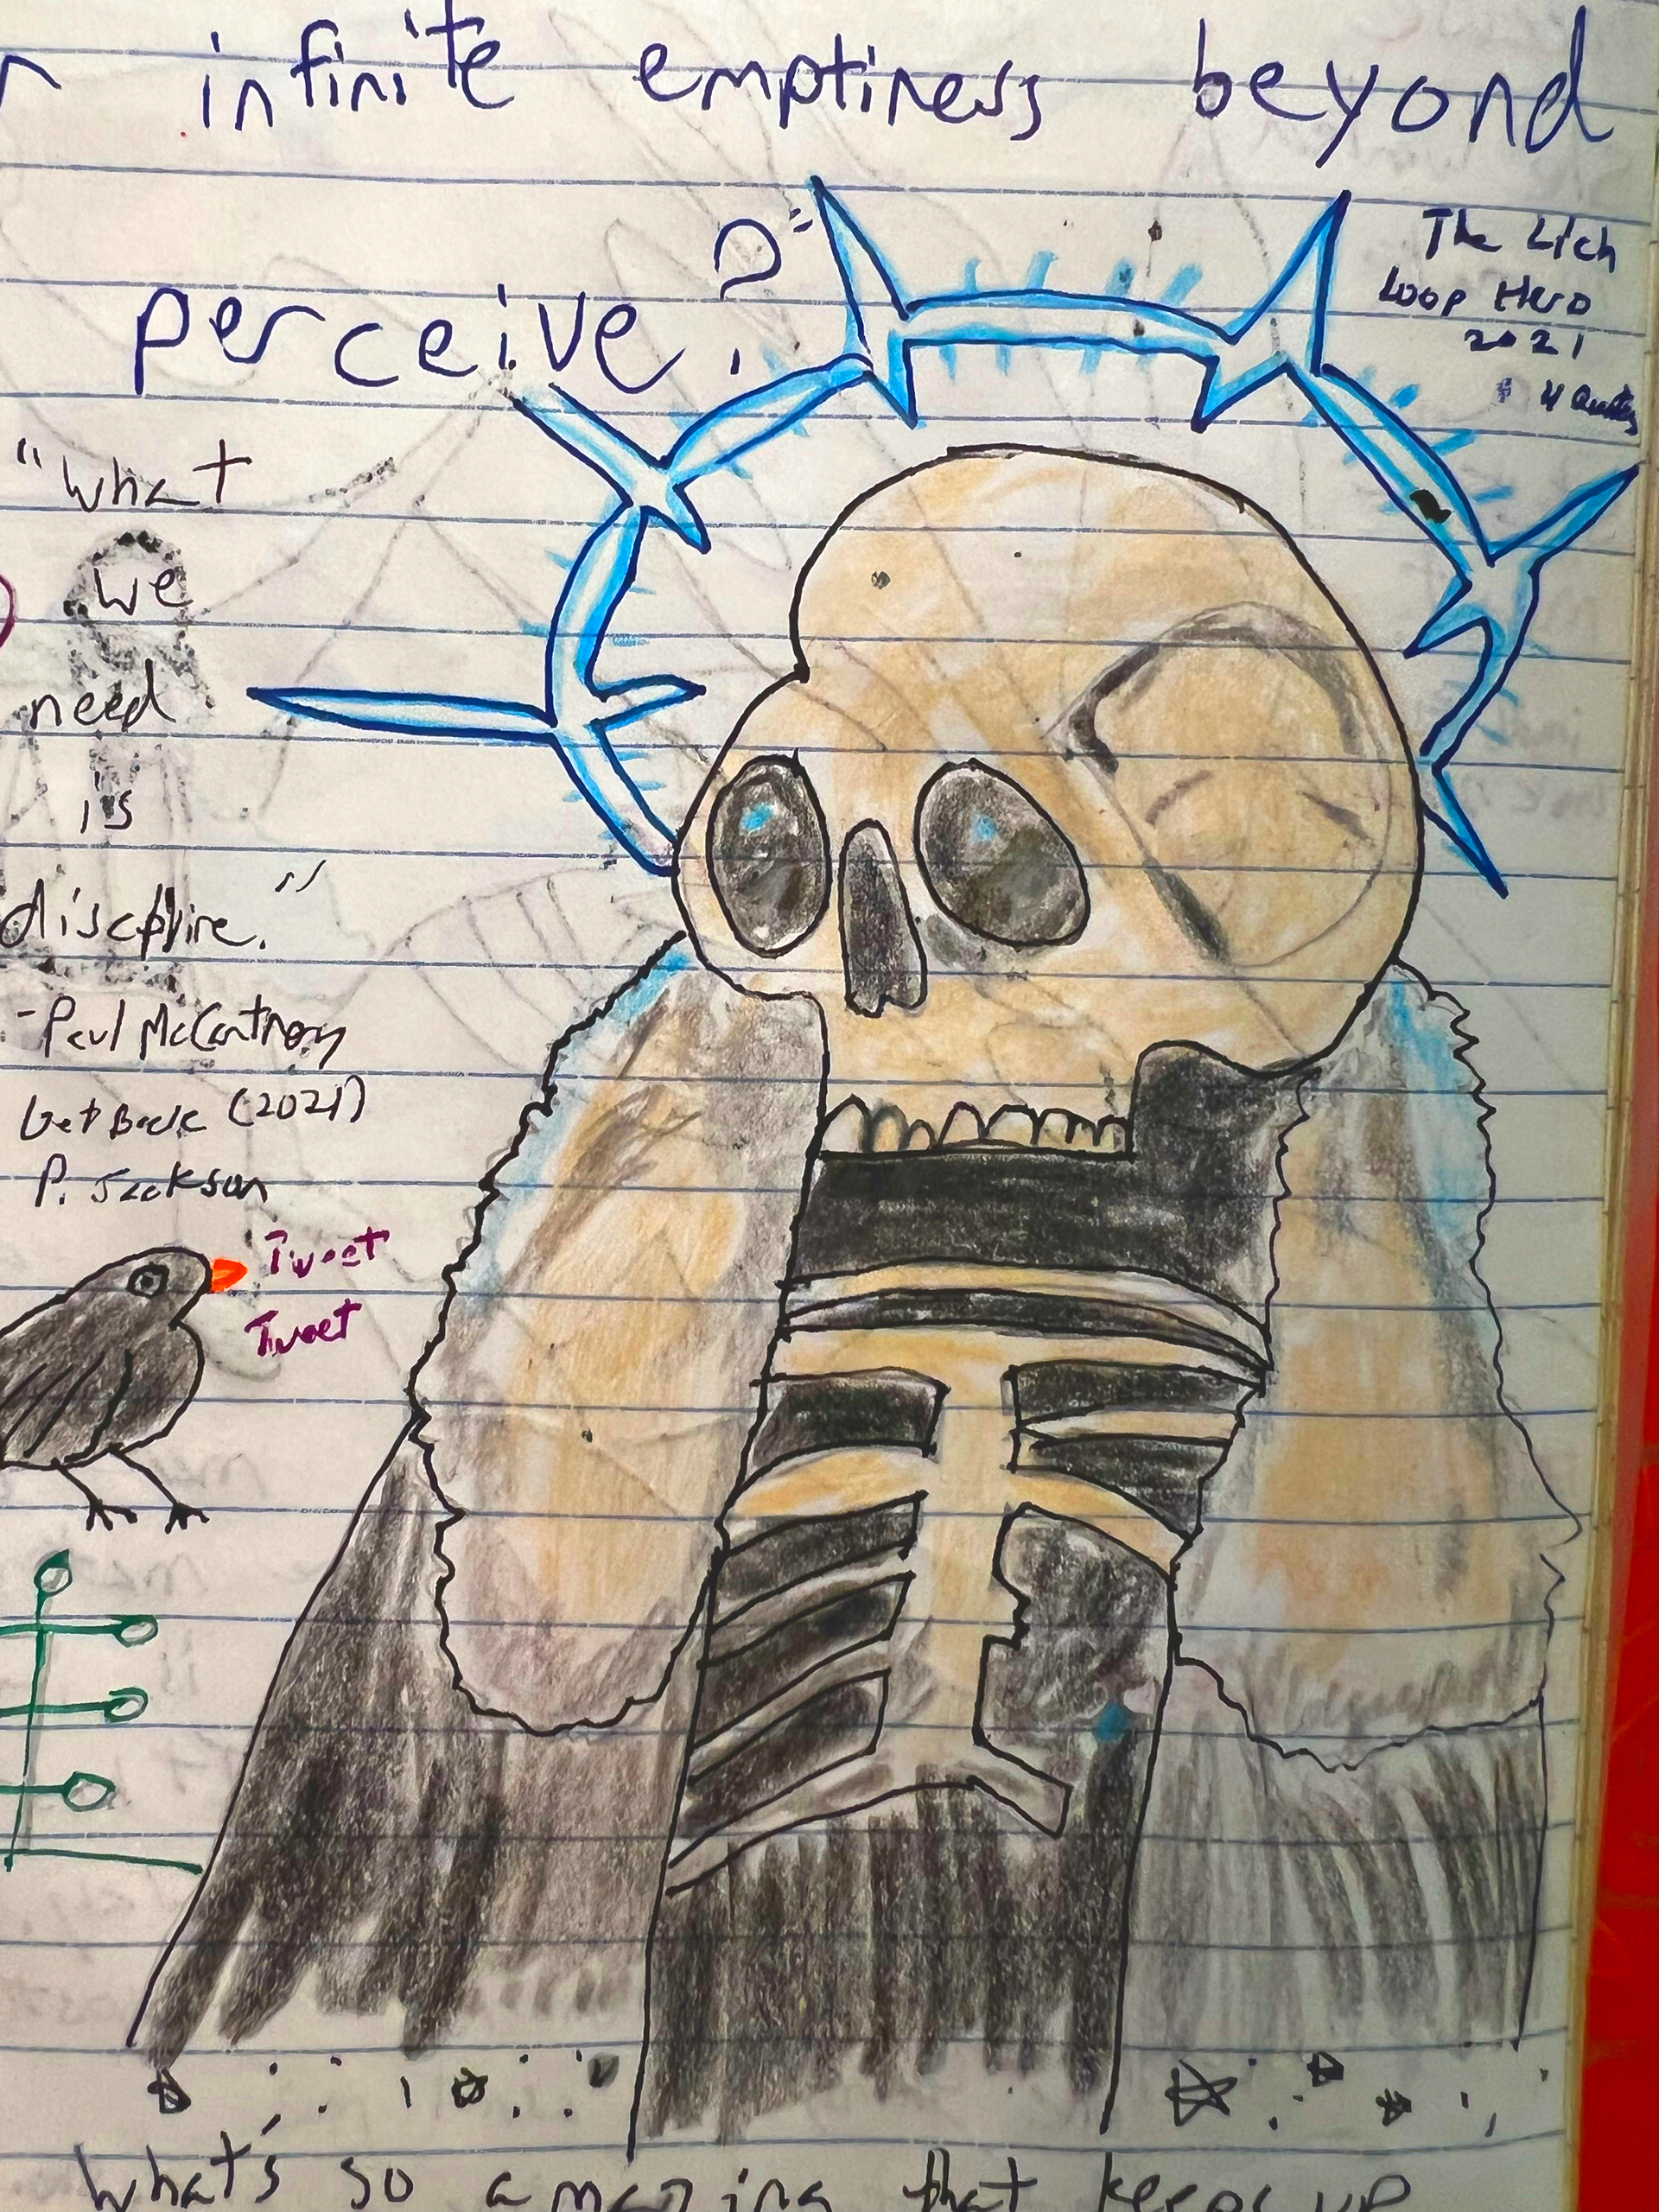 infinite emptiness beyond
perceive?"
The Lich
Loop Hero
2021
4 Quotes
"What
we
need
is
discipline."
-Paul McCartney
Get Back (2021)
P. Jackson
Tweet
Tweet
What's so amazing that keeps up